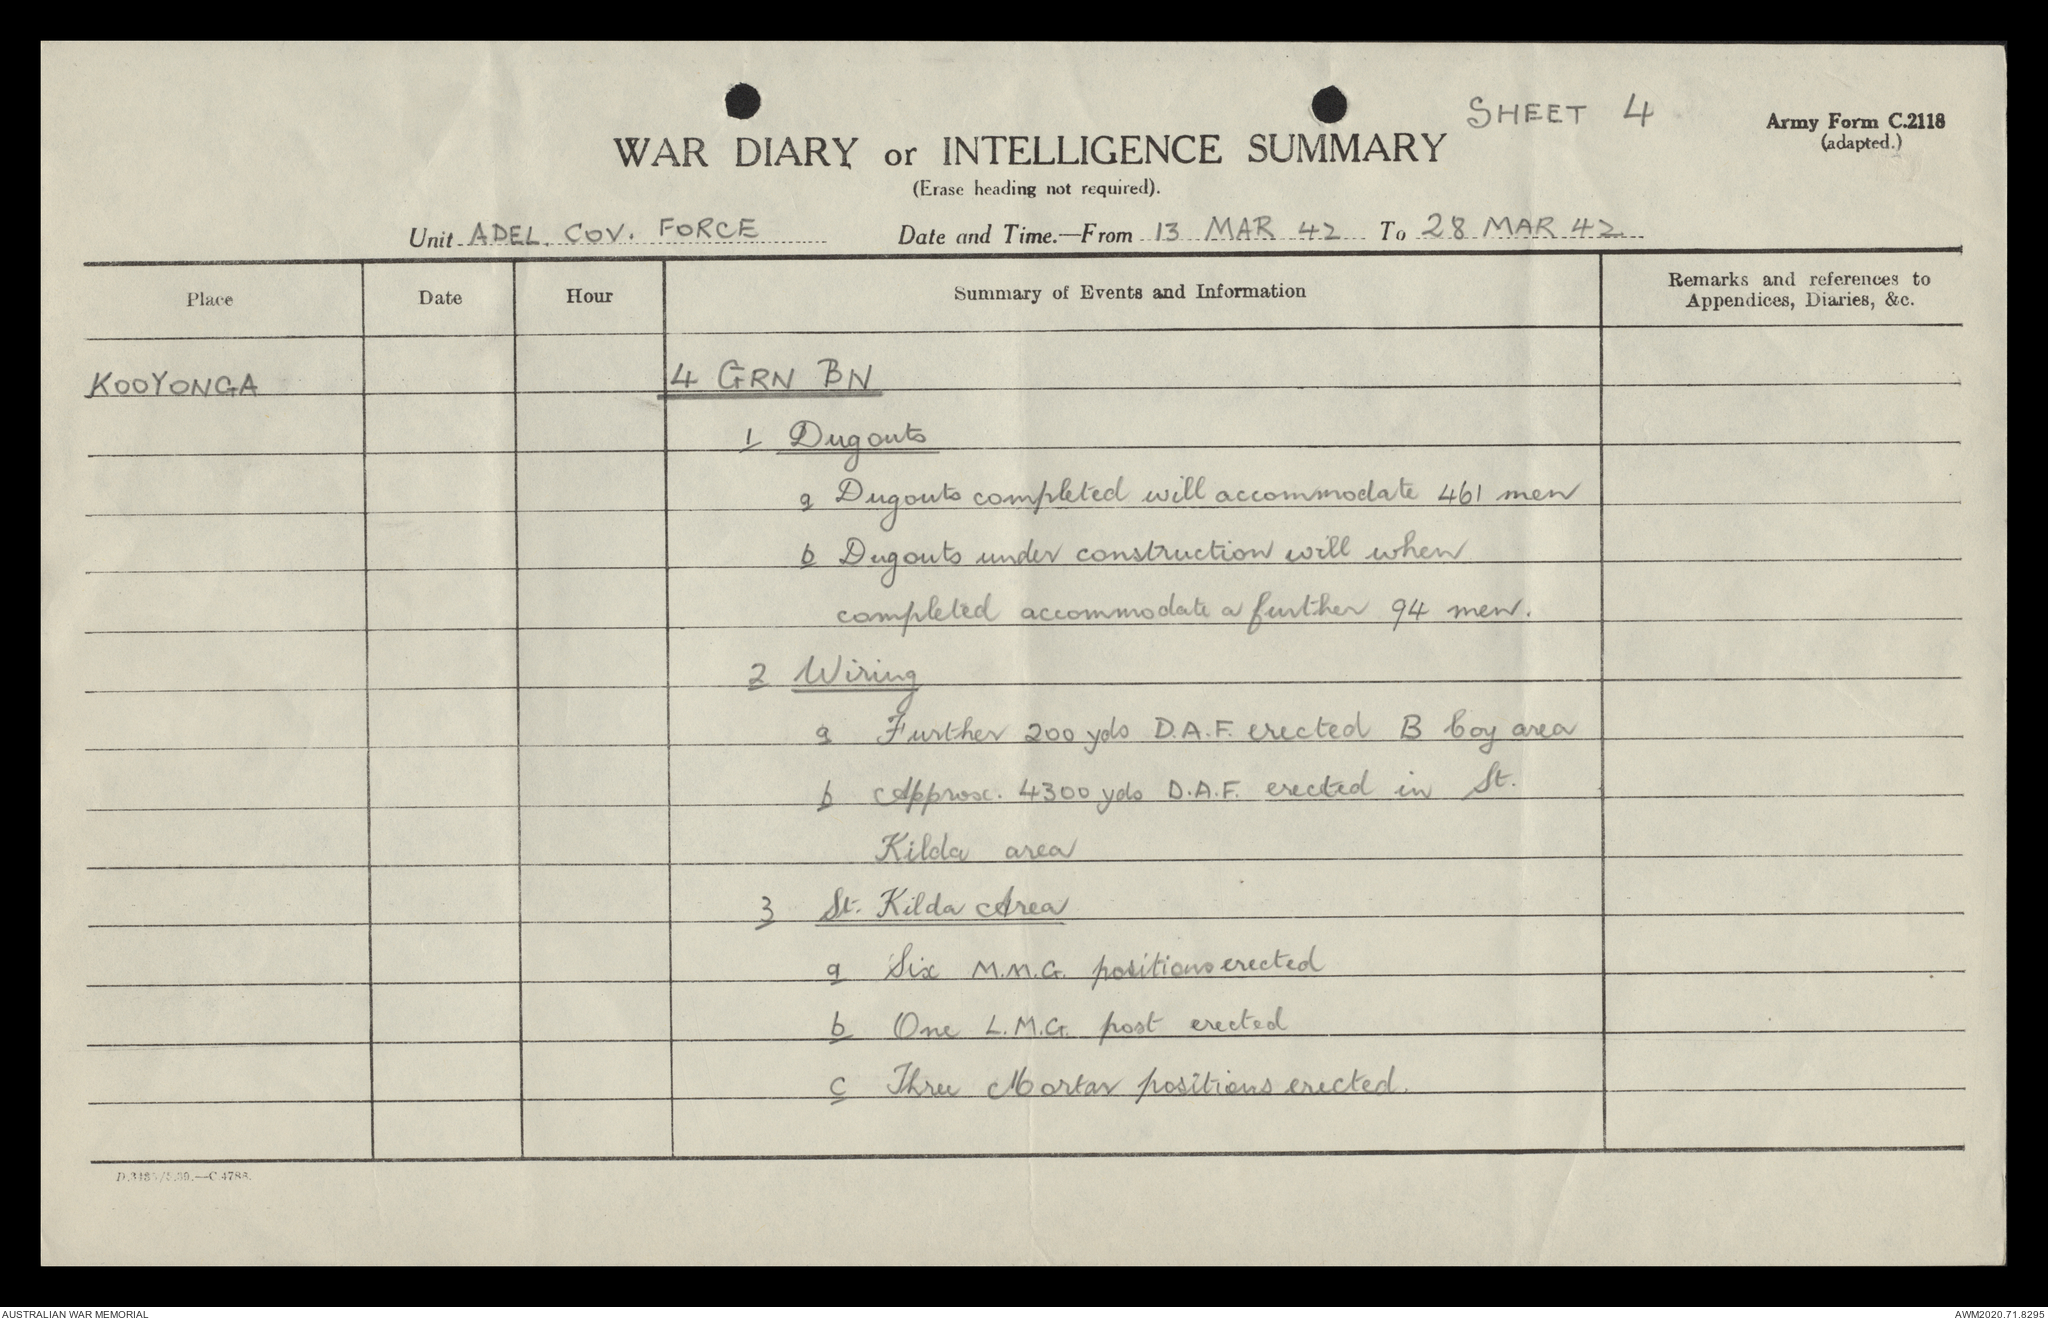 SHEET 4
Army Form C.2118
(adapted.)
WAR DIARY or INTELLIGENCE SUMMARY
(Erase heading not required).
Unit ADEL. COV. FORCE Date and Time.—From 13 MAR 42 To 28 MAR 42
Place Date Hour Summary of Events and Information Remarks and references to
Appendices, Diaries, &c.
KOOYONGA 4 GRN BN
1 Dugouts
a Dugouts completed will accommodate 461 men
b Dugouts under construction will when
completed accommodate a further 94 men.
2 Wiring
a Further 200 yds D.A.F. erected B Coy area
b Approx. 4300 yds D.A.F. erected in St.
Kilda area
3 St. Kilda Area
a Six M.M.G. positions erected
b One L.M.G. post erected
c Three Mortar positions erected.
AUSTRALIAN WAR MEMORIAL AWM2020.71.8295